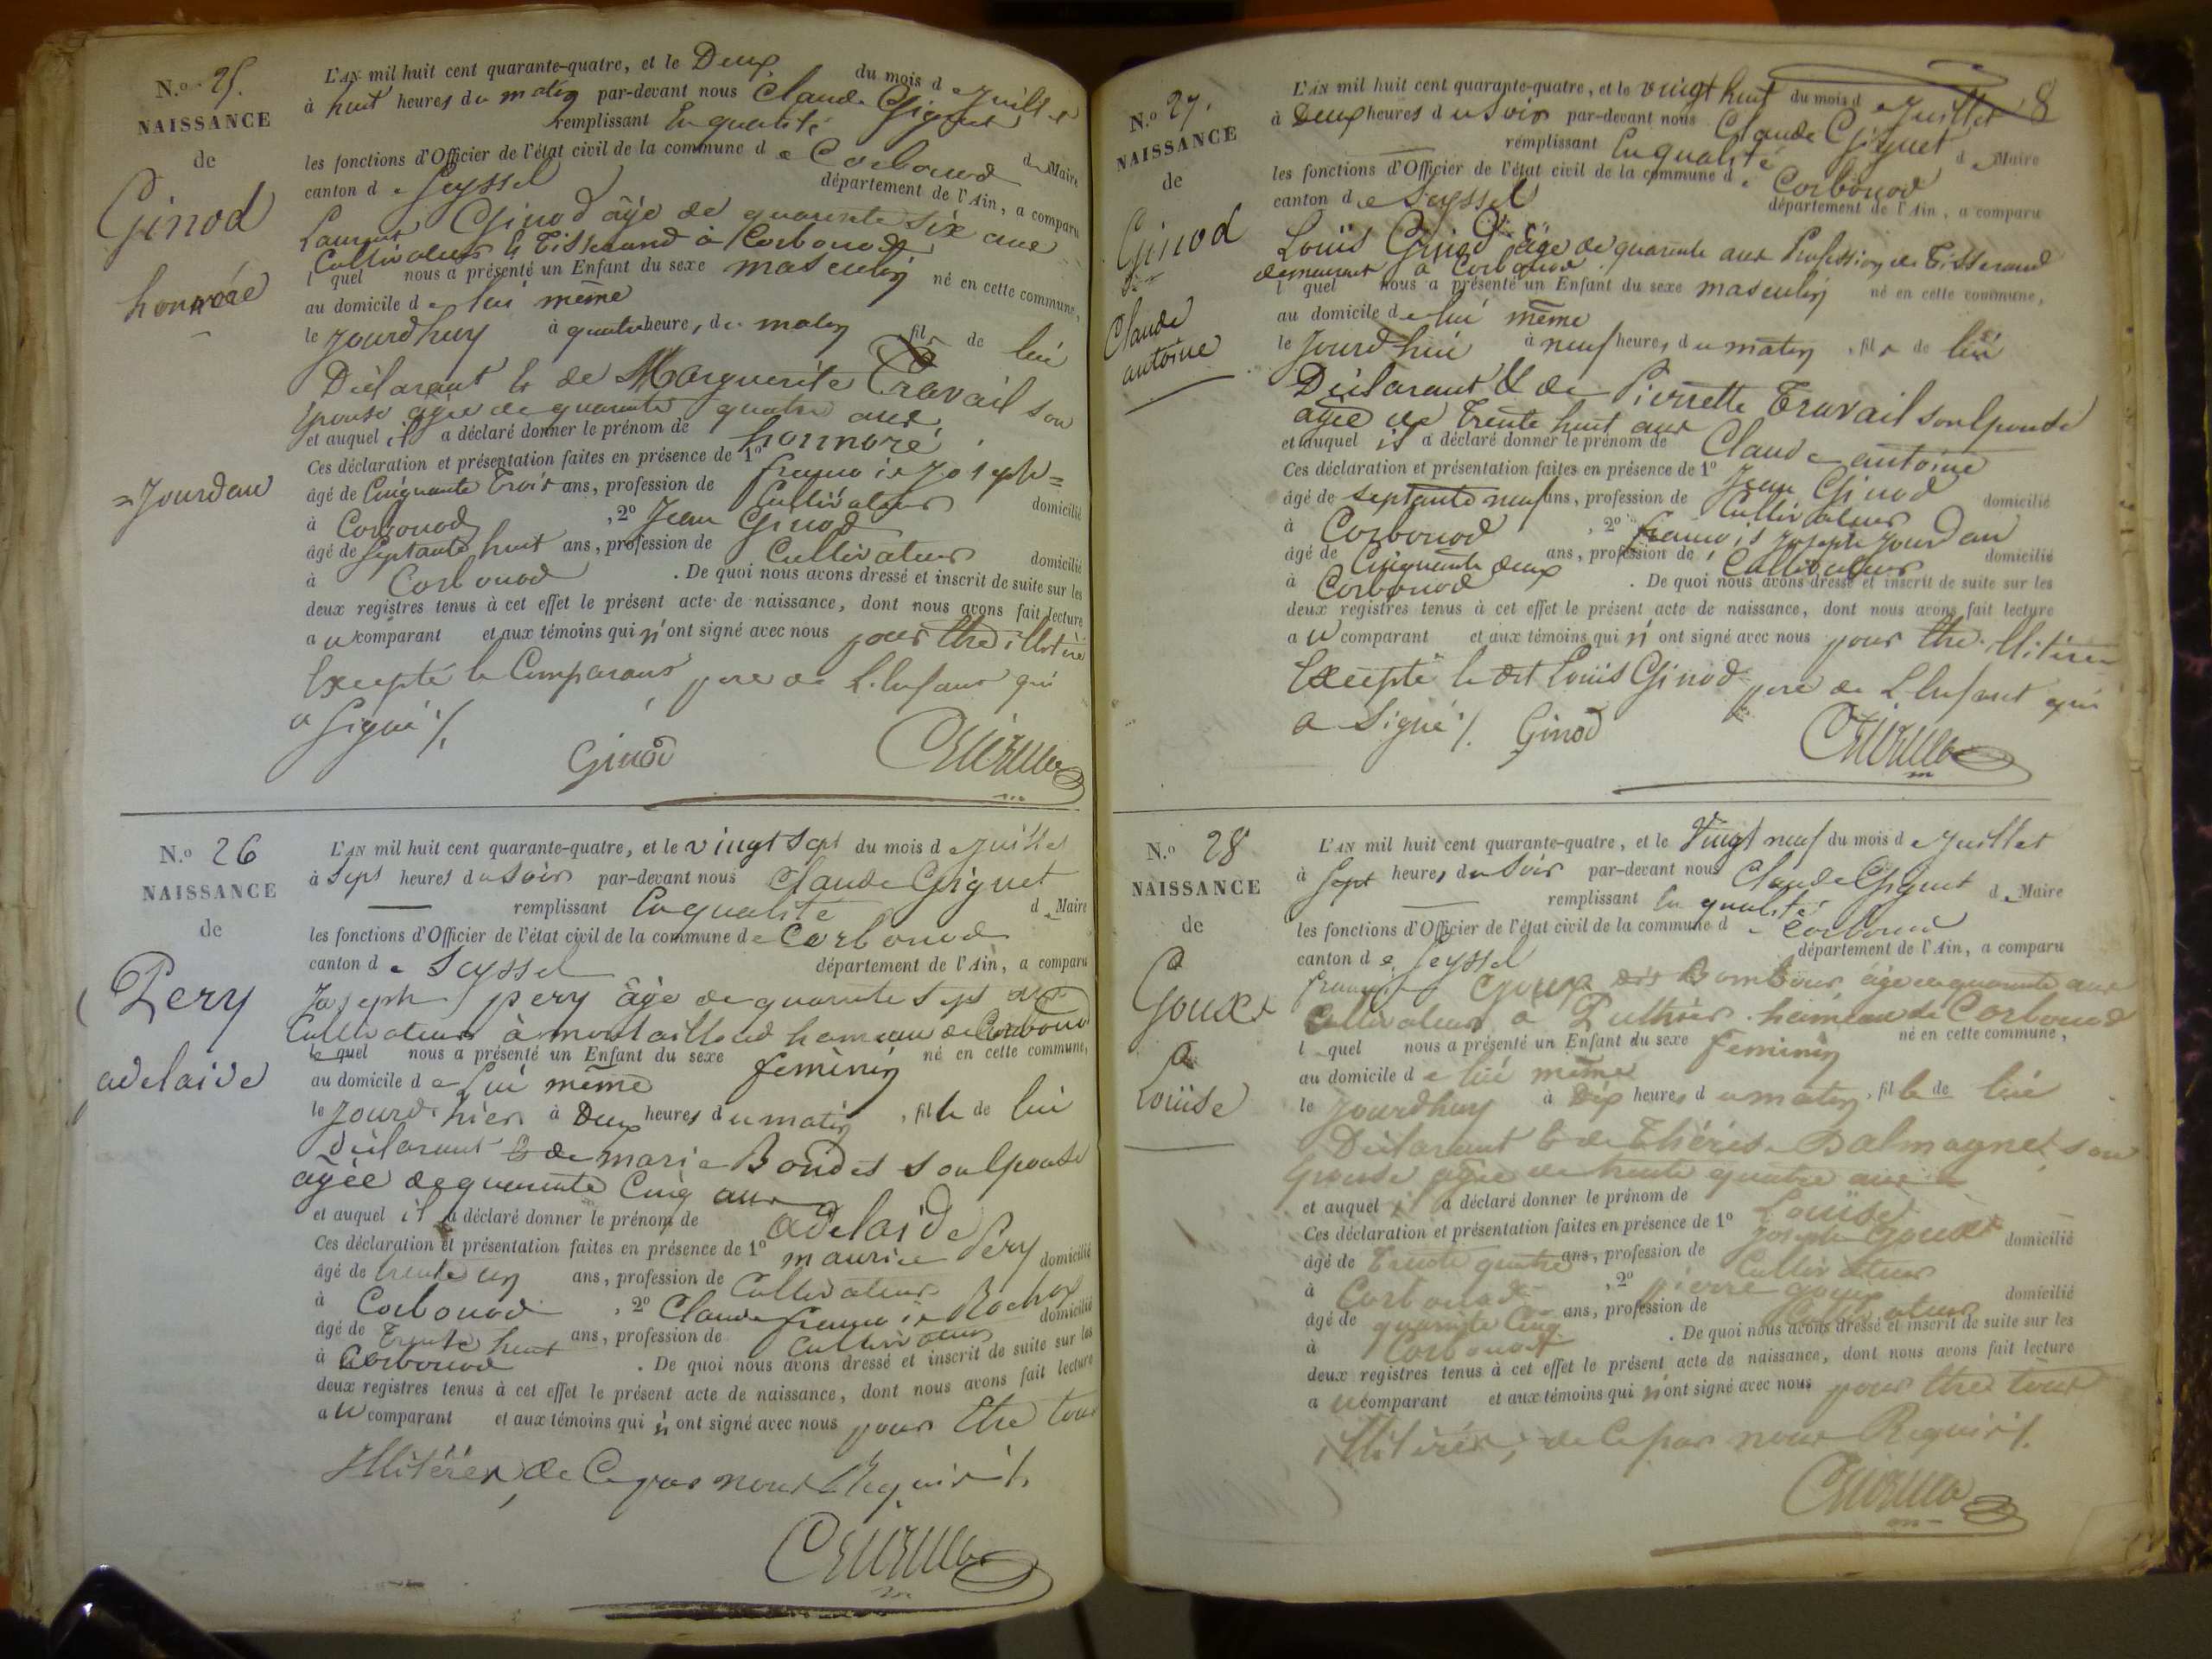 N.o 25.
NAISSANCE
de
Ginod
honnoré
= Jourdan
L'AN mil huit cent quarante-quatre, et le Deux du mois de Juillet
à huit heures du matin par-devant nous Claude Giguet
remplissant En qualité de Maire
les fonctions d'Officier de l'état civil de la commune de Corbonod
canton de Seyssel département de l'Ain, a comparu
Laurent Ginod âgé de quarente six ans
Cultivateur & Tisserand à Corbonod
lequel nous a présenté un Enfant du sexe masculin né en cette commune,
au domicile de lui même
le jourdhuy à quatre heures du matin fils de lui
Déclarant & de Marguerite Travail son
Epouse agée de quarante quatre ans,
et auquel il a déclaré donner le prénom de honnoré
Ces déclaration et présentation faites en présence de 1o françois Joseph =
âgé de Cinquante Trois ans, profession de Cultivateur domicilié
à Corbonod, 2o Jean Ginod
âgé de septante huit ans, profession de Cultivateur domicilié
à Corbonod. De quoi nous avons dressé et inscrit de suite sur les
deux registres tenus à cet effet le présent acte de naissance, dont nous avons fait lecture
au comparant et aux témoins qui n'ont signé avec nous pour Etre illitérés
Excepté le Comparant pere de L'Enfant qui
a signé /.
Ginod
N.o 26
NAISSANCE
de
Pery
adelaide
L'AN mil huit cent quarante-quatre, et le vingt Sept du mois de Juillet
à Sept heures du Soir par-devant nous Claude Giguet
remplissant En qualité de Maire
les fonctions d'Officier de l'état civil de la commune de Corbonod
canton de Seyssel département de l'Ain, a comparu
Joseph pery âgé de quarante sept ans
Cultivateur à montailloud hameau de Corbonod
lequel nous a présenté un Enfant du sexe feminin né en cette commune,
au domicile de Lui même
le jourd'hier à Deux heures du matin, fille de lui
déclarant & de marie Bondet son Epouse
agée de quarente Cinq ans
et auquel il a déclaré donner le prénom de adelaide
Ces déclaration et présentation faites en présence de 1o maurice Pery domicilié
âgé de trente un ans, profession de Cultivateur
à Corbonod, 2o Claude françois Rochax domicilié
âgé de Trente huit ans, profession de Cultivateur
à Corbonod. De quoi nous avons dressé et inscrit de suite sur les
deux registres tenus à cet effet le présent acte de naissance, dont nous avons fait lecture
au comparant et aux témoins qui n'ont signé avec nous pour Etre tous
Illitérés, de Ce par nous Requis /.
8
N.o 27.
NAISSANCE
de
Ginod
Claude
antoine
L'AN mil huit cent quarante-quatre, et le vingt huit du mois de Juillet
à Deux heures du Soir par-devant nous Claude Giguet
remplissant En qualité de Maire
les fonctions d'Officier de l'état civil de la commune de Corbonod
canton de Seyssel département de l'Ain, a comparu
Louis Ginod âgé de quarante ans Profession de Tisserand
demeurant à Corbonod
lequel nous a présenté un Enfant du sexe masculin né en cette commune,
au domicile de lui même
le jourdhui à neuf heures du matin, fils de lui
Déclarant & de Pierrette Travail son Epouse
agée de Trente huit ans
et auquel il a déclaré donner le prénom de Claude antoine
Ces déclaration et présentation faites en présence de 1o Jean Ginod
âgé de septante neuf ans, profession de Cultivateur domicilié
à Corbonod, 2o françois Joseph Jourdan
âgé de Cinquante deux ans, profession de Cultivateur domicilié
à Corbonod. De quoi nous avons dressé et inscrit de suite sur les
deux registres tenus à cet effet le présent acte de naissance, dont nous avons fait lecture
au comparant et aux témoins qui n'ont signé avec nous pour Etre illitérés
Excepté le dit Louis Ginod pere de L'Enfant qui
a signé /. Ginod
N.o 28
NAISSANCE
de
Goux
Louise
L'AN mil huit cent quarante-quatre, et le Vingt neuf du mois de Juillet
à Sept heures du Soir par-devant nous Claude Giguet
remplissant En qualité de Maire
les fonctions d'Officier de l'état civil de la commune de Corbonod
canton de Seyssel département de l'Ain, a comparu
françois Goux dit Bambour âgé de quarante ans
Cultivateur à Puthier hameau de Corbonod
lequel nous a présenté un Enfant du sexe feminin né en cette commune,
au domicile de lui même
le jourdhuy à Dix heures du matin, fille de lui
Déclarant & de Thérèse Balmagnet son
Epouse agée de trente quatre ans
et auquel il a déclaré donner le prénom de Louise
Ces déclaration et présentation faites en présence de 1o Joseph Goux
âgé de Trente quatre ans, profession de Cultivateur domicilié
à Corbonod, 2o pierre goux
âgé de quarante Cinq ans, profession de Cultivateur domicilié
à Corbonod. De quoi nous avons dressé et inscrit de suite sur les
deux registres tenus à cet effet le présent acte de naissance, dont nous avons fait lecture
au comparant et aux témoins qui n'ont signé avec nous pour Etre tous
illitérés, de Ce par nous Requis /.